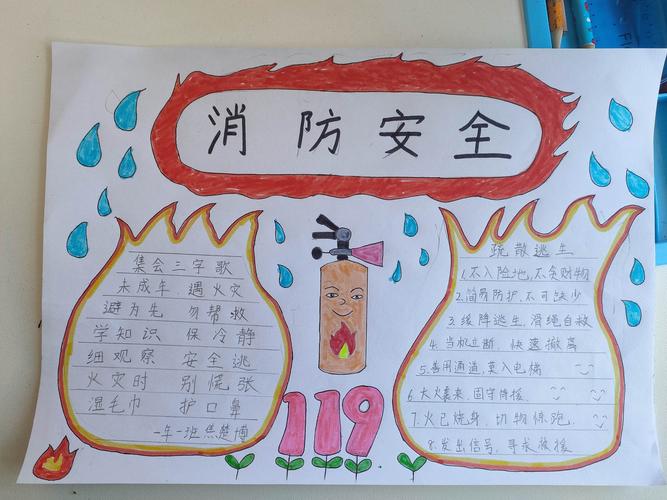 消防安全
集会三字歌
未成年 遇火灾
避为先 勿帮救
学知识 保冷静
细观察 安全逃
火灾时 别慌张
湿毛巾 护口鼻
一年一班焦楚博
119
疏散逃生
1.不入险地,不贪财物
2.简易防护,不可缺少
3.缓降逃生,滑绳自救
4.当机立断,快速撤离
5.善用通道,莫入电梯
6.大火袭来,固守待援.
7.火已烧身,切勿惊跑.
8.发出信号,寻求救援